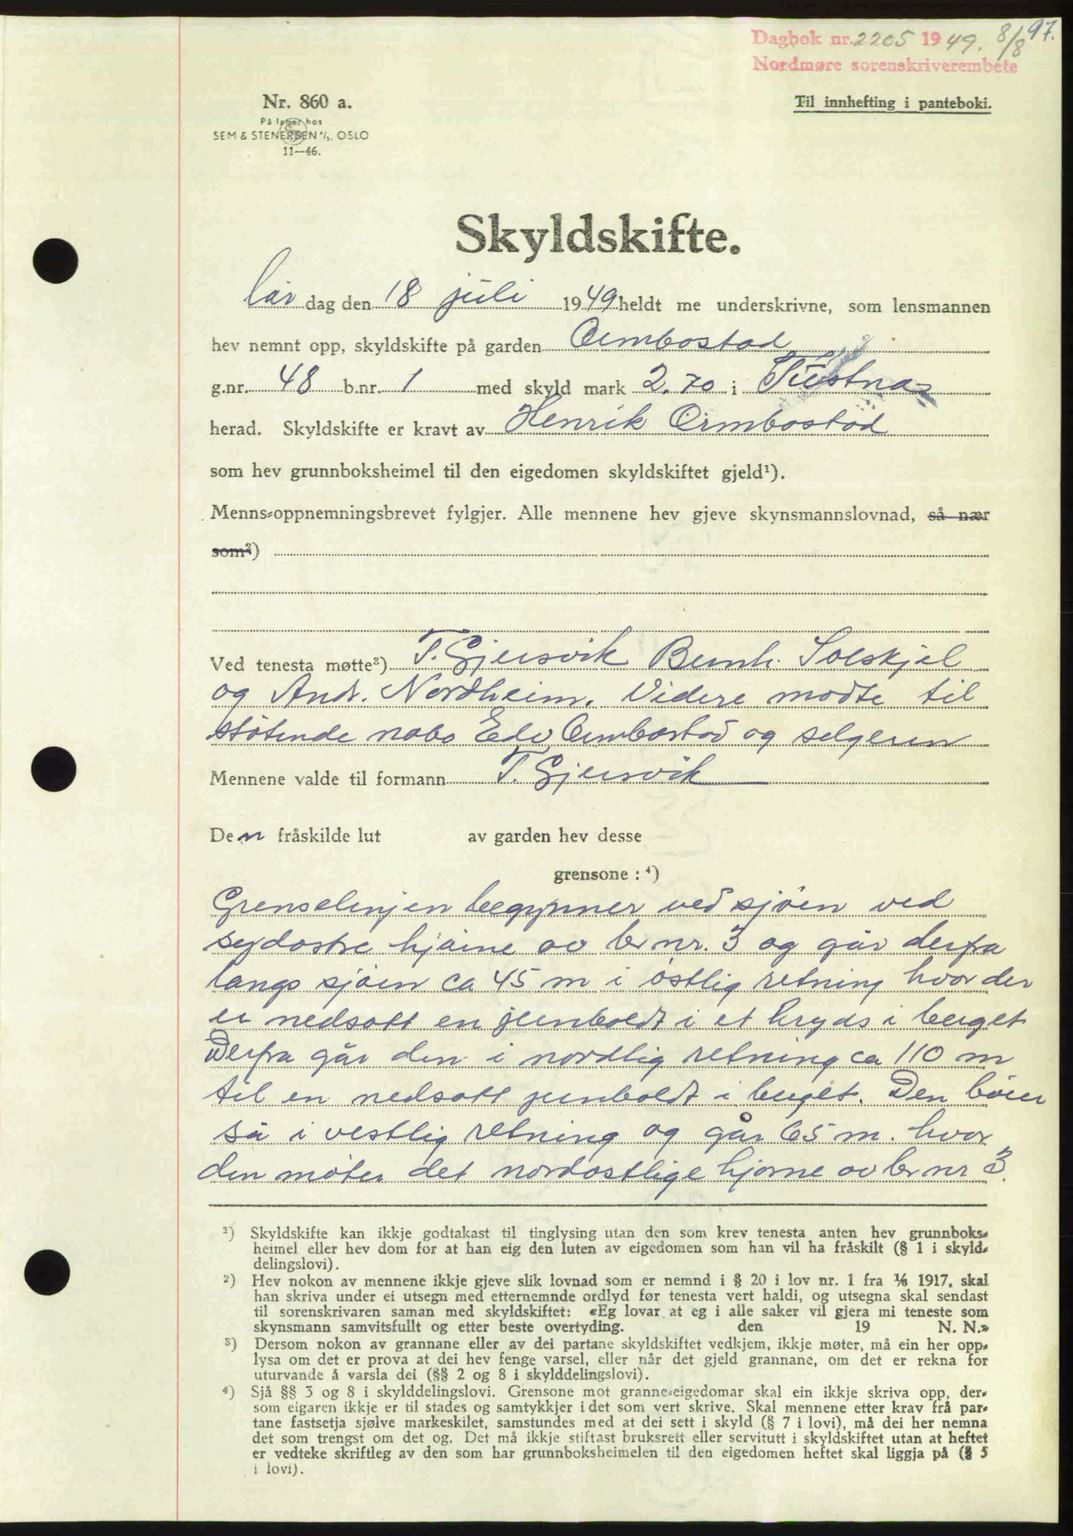 97.
Dagbok nr. 2205 1949. 8/8
Nordmøre sorenskriverembete
Nr. 860 a.
Til innhefting i panteboki.
På lager hos
SEM & STENERSEN A/S, OSLO
11—46.
Skyldskifte.
Lør dag den 18 juli 1949 heldt me underskrivne, som lensmannen
hev nemnt opp, skyldskifte på garden Ormbostad
g.nr. 48 b.nr. 1 med skyld mark 2.70 i Tustna
herad. Skyldskifte er kravt av Henrik Ormbostad
som hev grunnboksheimel til den eigedomen skyldskiftet gjeld¹).
Menns-oppnemningsbrevet fylgjer. Alle mennene hev gjeve skynsmannslovnad, så nær
som²)
Ved tenesta møtte³) T. Gjersvik Bernh. Solskjel
og Andr. Nordheim. Videre møtte til
støtende nabo Edv Ormbostad og selgeren
Mennene valde til formann T. Gjersvik
Den fråskilde lut av garden hev desse
grensone : ⁴)
Grenselinjen begynner ved sjöen ved
sydøstre hjörne av br nr. 3 og går derfra
langs sjöen ca 45 m i östlig retning hvor der
er nedsatt en jernboldt i et kryds i berget
Derfra går den i nordlig retning ca 110 m
til en nedsatt jernboldt i berget. Den böier
så i vestlig retning og går 65 m. hvor
den møter det nordøstlige hjørne av br nr 3.
¹) Skyldskifte kan ikkje godtakast til tinglysing utan den som krev tenesta anten hev grunnboks-
heimel eller hev dom for at han eig den luten av eigedomen som han vil ha fråskilt (§ 1 i skyld-
delingslovi).
²) Hev nokon av mennene ikkje gjeve slik lovnad som er nemnd i § 20 i lov nr. 1 fra 1/6 1917, skal
han skriva under ei utsegn med etternemnde ordlyd før tenesta vert haldi, og utsegna skal sendast
til sorenskrivaren saman med skyldskiftet: «Eg lovar at eg i alle saker vil gjera mi teneste som
skynsmann samvitsfullt og etter beste overtyding. den 19 N. N.»
³) Dersom nokon av grannane eller av dei partane skyldskiftet vedkjem, ikkje møter, må ein her opp-
lysa om det er prova at dei hev fenge varsel, eller når det gjeld grannane, om det er rekna for
uturvande å varsla dei (§§ 2 og 8 i skylddelingslovi).
⁴) Sjå §§ 3 og 8 i skylddelingslovi. Grensone mot granne-eigedomar skal ein ikkje skriva opp, der-
som eigaren ikkje er til stades og samtykkjer i det som vert skrive. Skal mennene etter krav frå par-
tane fastsetja sjølve markeskilet, samstundes med at dei sett i skyld (§ 7 i lovi), må dei her nemna
det som trengst om det og. Det må ikkje stiftast bruksrett eller servitutt i skyldskiftet utan at heftet
er vedteke skriftleg av den som har grunnboksheimelen til den eigedomen heftet skal liggja på (§ 5
i lovi).